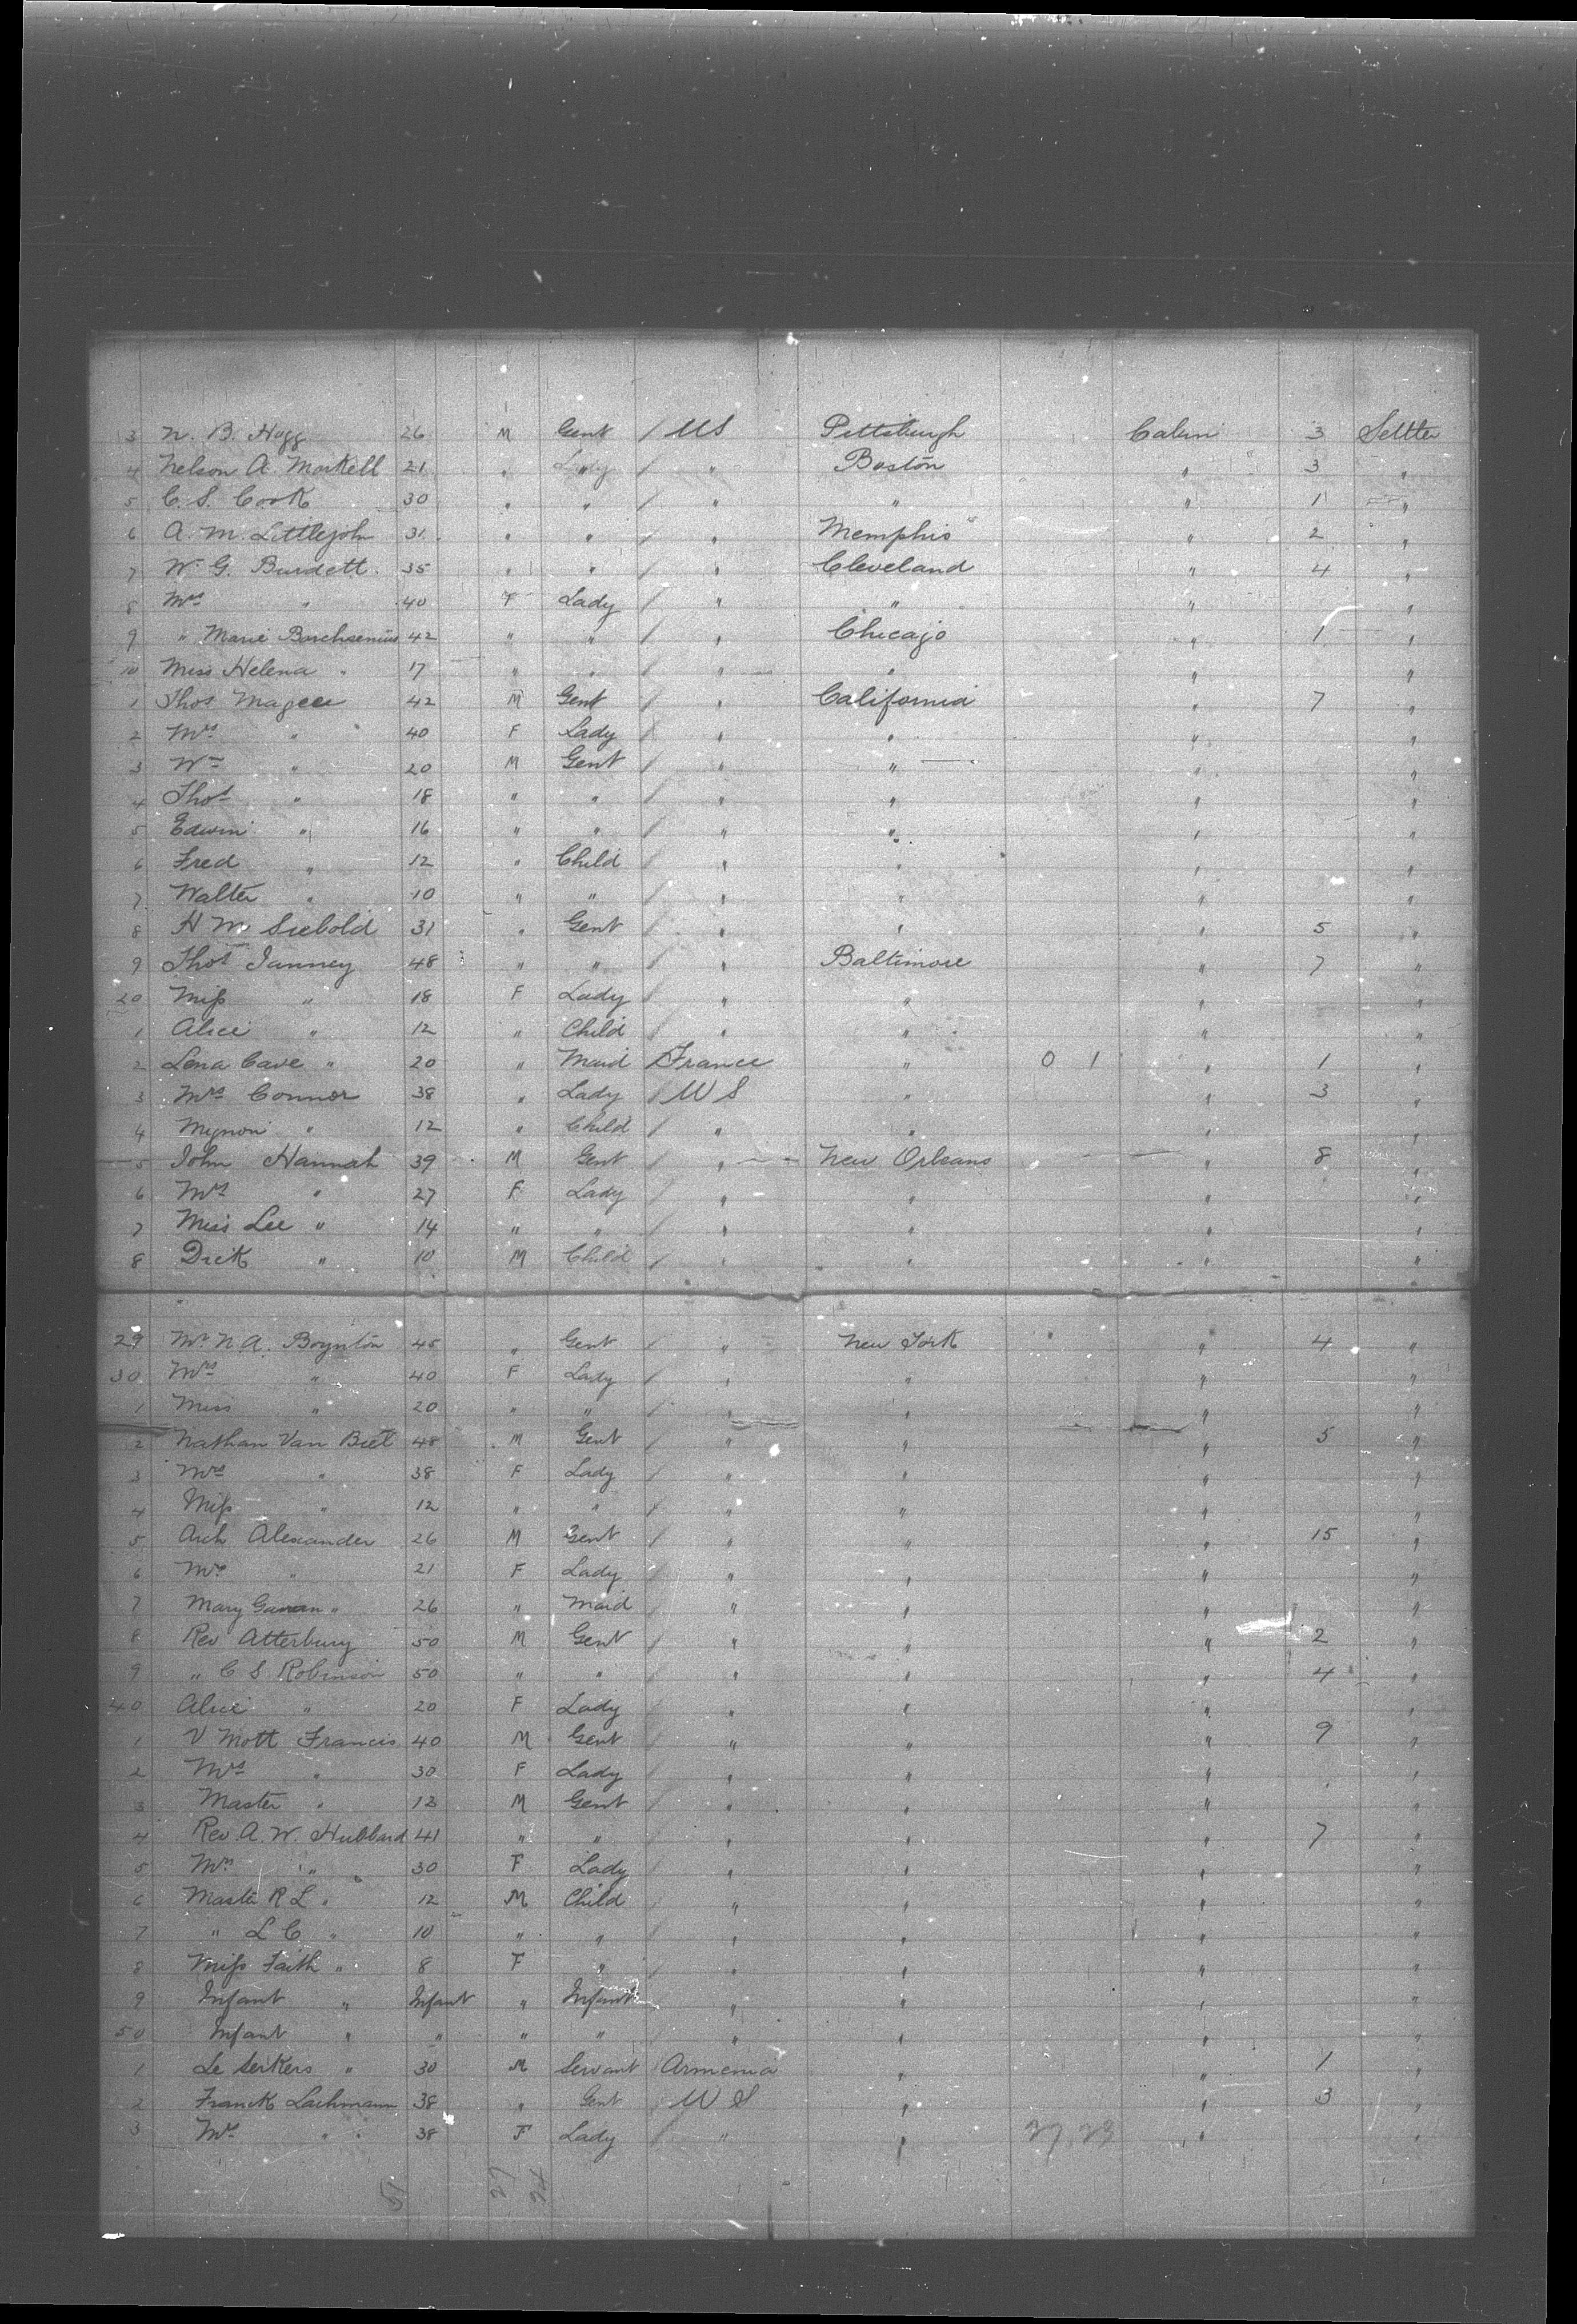 3 N. B. Hogg 26 M Gent / US Pittsburgh Cabin 3 Settler
4 Nelson A. Morkell 21 " " / " Boston " 3 "
5 C. S. Cook 30 " " / " " " 1 "
6 A. M. Littlejohn 31 " " / " Memphis " 2 "
7 W. G. Burdett. 35 " " / " Cleveland " 4 "
8 Mrs " 40 F Lady / " " " "
9 " Marie Borchsenius 42 " " / " Chicago " 1 "
10 Miss Helena " 17 " " / " " " "
1 Thos Magee 42 M Gent / " California " 7 "
2 Mrs " 40 F Lady / " " " "
3 Wm " 20 M Gent / " " " "
4 Thos " 18 " " / " " " "
5 Edwin " 16 " " / " " " "
6 Fred " 12 " Child / " " " "
7 Walter " 10 " " / " " " "
8 H W. Siebold 31 " Gent / " " " 5 "
9 Thos Janney 48 " " / " Baltimore " 7 "
20 Miss " 18 F Lady / " " " "
1 Alice " 12 " Child / " " " "
2 Lena Cave " 20 " Maid / France " 0 1 " 1 "
3 Mrs Connor 38 " Lady / U S " " 3 "
4 Mignon " 12 " Child / " " " "
5 John Hannah 39 M Gent / " New Orleans " 8 "
6 Mrs " 27 F Lady / " " " "
7 Miss Lee " 14 " " / " " " "
8 Dick " 10 M Child / " " " "
29 Mr N. A. Boynton 45 " Gent / " New York " 4 "
30 Mrs " 40 F Lady / " " " "
1 Miss " 20 " " / " " " "
2 Nathan Van Biel 48 M Gent / " " " 5 "
3 Mrs " 38 F Lady / " " " "
4 Miss " 12 " " / " " " "
5 Arch Alexander 26 M Gent / " " " 15 "
6 Mrs " 21 F Lady / " " " "
7 Mary " 26 " Maid / " " " "
8 Rev Atterbury 50 M Gent / " " " 2 "
9 " C S Robinson 50 " " / " " " 4 "
40 Alice " 20 F Lady / " " " "
1 V Mott Francis 40 M Gent / " " " 9 "
2 Mrs " 30 F Lady / " " " "
3 Master " 12 M Gent / " " " "
4 Rev. A. W. Hubbard 41 " " / " " " 7 "
5 Mrs " 30 F Lady / " " " "
6 Master R L " 12 M Child / " " " "
7 " L C " 10 " " / " " " "
8 Miss Faith " 8 F " / " " " "
9 Infant " Infant " Infant / " " " "
50 Infant " " " " / " " " "
1 Le Serkers " 30 M Servant / Armenia " " 1 "
2 Franck Lachmann 38 " Gent U S " " 3 "
3 Mrs " 38 F Lady / " " 27.23 " "
51 27 24